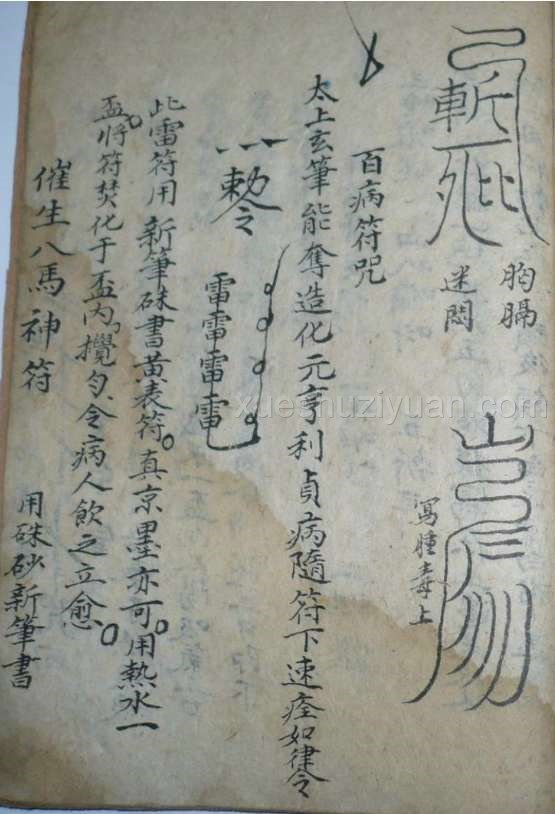 斬
胸膈
迷悶
寫腫毒上
百病符咒
太上玄筆能奪造化元亨利貞病隨符下速痊如律令
敕令
雷雷雷雷
此雷符用新筆硃書黃表符。真京墨亦可。用熱水一
盃。將符焚化于盃內、攪勻、令病人飲之立愈。
催生八馬神符
用硃砂新筆書
xueshuziyuan.com